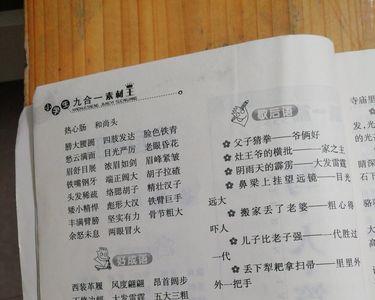 小学生九合一素材王
热心肠 和尚头
膀大腰圆 四肢发达 脸色铁青
愁云满面 目光严厉 老眼昏花
眉舒目展 浓眉如剑 眉峰紧皱
铁嘴钢牙 端正阔大 胡子拉碴
头发稀疏 络腮胡子 精壮汉子
矮小精悍 彪形大汉 铁臂巨手
丰满臂膀 坚实有力 骨节粗大
余怒未息 两眼冒火
好成语
西装革履 风度翩翩 昂首阔步
大发雷霆 五大三粗
歇后语
父子猜拳——爷俩好
灶王爷的横批——一家之主
阴雨天的霹雳——大发雷霆
鼻梁上挂望远镜——目光
远大
搬家丢了老婆——粗心得
吓人
儿子比老子强——一代胜过
一代
丢下犁耙拿扫帚——里里外
外一把手
寺庙里